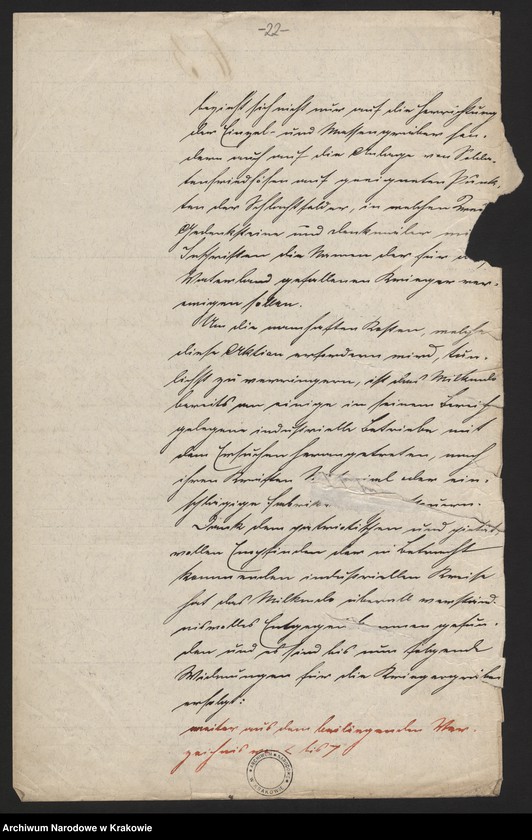 -22-
bezieht sich nicht nur auf die Herrichtung
der Einzel- und Massengräber son-
dern auch auf die Anlage von Solda-
tenfriedhöfen auf geeigneten Punk-
ten der Schlachtfelder, in welchen
Gedenksteine und Denkmäler mi
Inschriften die Namen der für d
Vaterland gefallenen Krieger ver-
ewigen sollen.
Um die namhaften Kosten, welche
diese Aktion erfordern wird, tun-
lichst zu verringern, ist das Milkmdo
bereits an einige in seinem Bereich
gelegene industrielle Betriebe mit
dem Ersuchen herangetreten, nach
ihren Kräften oder ein-
schlägige Fabrik
Dank dem patriotischen und pietät-
vollen Empfinden der in Betracht
kommenden industriellen Kreise
hat das Milkmdo überall verständ-
nisvolles Entgegenkommen gefun-
den und es sind bis nun folgende
Widmungen für die Kriegergräber
erfolgt:
weiter aus dem beiliegenden Ver-
zeichnis bis
ARCHIWUM NARODOWE W KRAKOWIE
Archiwum Narodowe w Krakowie